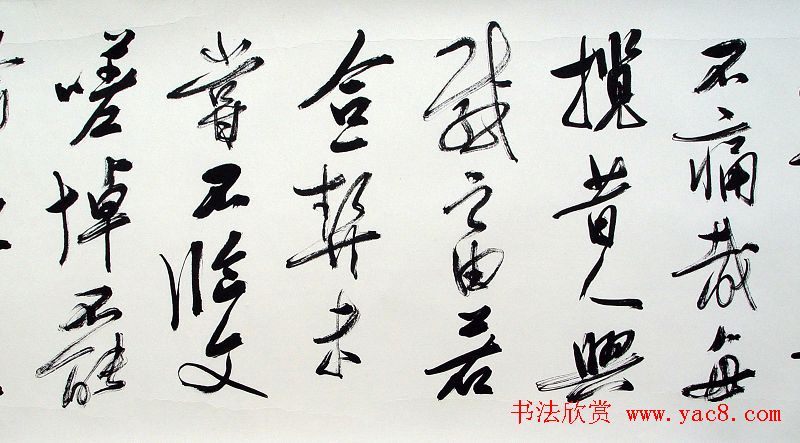 不痛哉每
攬昔人興
感之由若
合一契未
嘗不臨文
嗟悼不能
书法欣赏 www.yac8.com